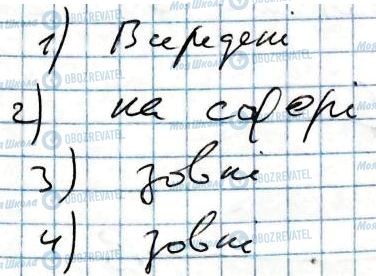 1) Всередені
2) на сфері
3) зовні
4) зовні